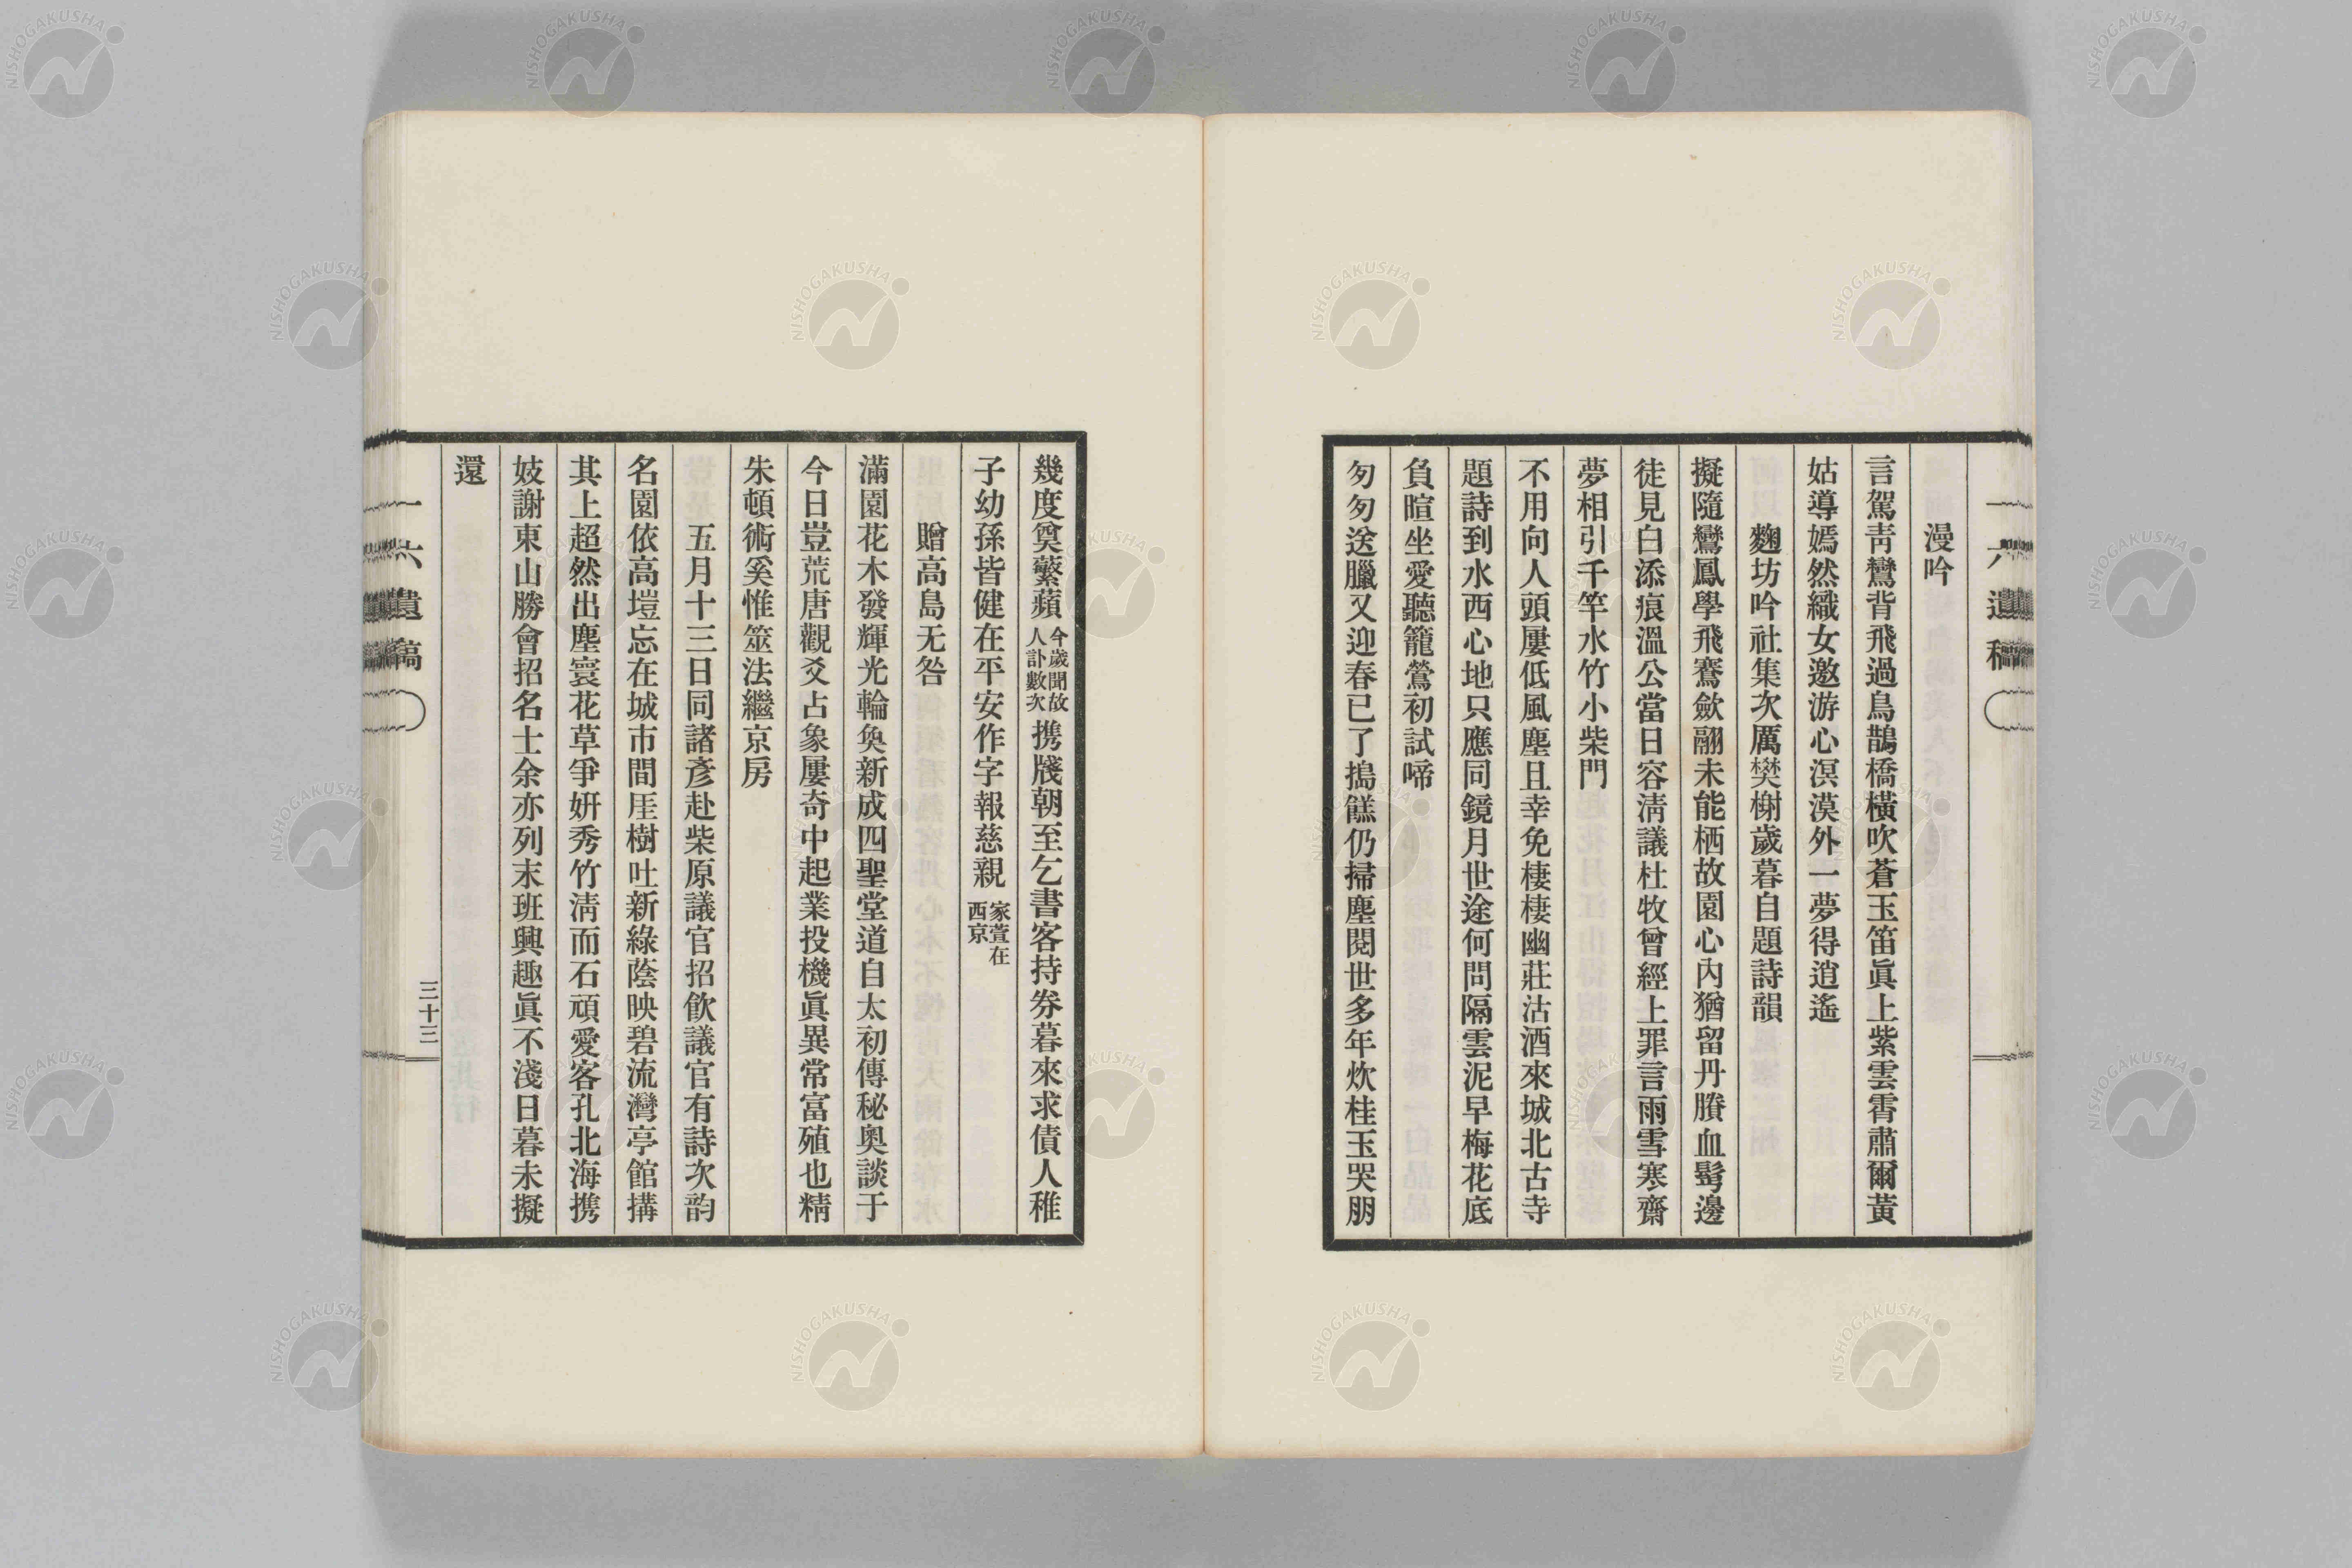 一六遺稿
漫吟
言駕靑鸞背飛過烏鵲橋橫吹蒼玉笛眞上紫雲霄肅爾黃
姑導嫣然織女邀游心溟漠外一夢得逍遙
麴坊吟社集次厲樊榭歲暮自題詩韻
擬隨鸞鳳學飛騫斂翮未能栖故園心內猶留丹賸血鬂邊
徒見白添痕溫公當日容淸議杜牧曾經上罪言雨雪寒齋
夢相引千竿水竹小柴門
不用向人頭屢低風塵且幸免棲棲幽莊沽酒來城北古寺
題詩到水西心地只應同鏡月世途何問隔雲泥早梅花底
負暄坐愛聽籠鶯初試啼
匆匆送臘又迎春已了搗餻仍掃塵閱世多年炊桂玉哭朋
幾度奠蘩蘋今歲聞故人訃數次携牋朝至乞書客持券暮來求債人稚
子幼孫皆健在平安作字報慈親家萱在西京
贈高島无咎
滿園花木發輝光輪奐新成四聖堂道自太初傳秘奧談于
今日豈荒唐觀爻占象屢奇中起業投機眞異常富殖也精
朱頓術奚惟筮法繼京房
五月十三日同諸彥赴柴原議官招飮議官有詩次韵
名園依高塏忘在城市間厓樹吐新綠蔭映碧流灣亭館搆
其上超然出塵寰花草爭姸秀竹淸而石頑愛客孔北海携
妓謝東山勝會招名士余亦列末班興趣眞不淺日暮未擬
還
一六遺稿
三十三
NISHOGAKUSHA